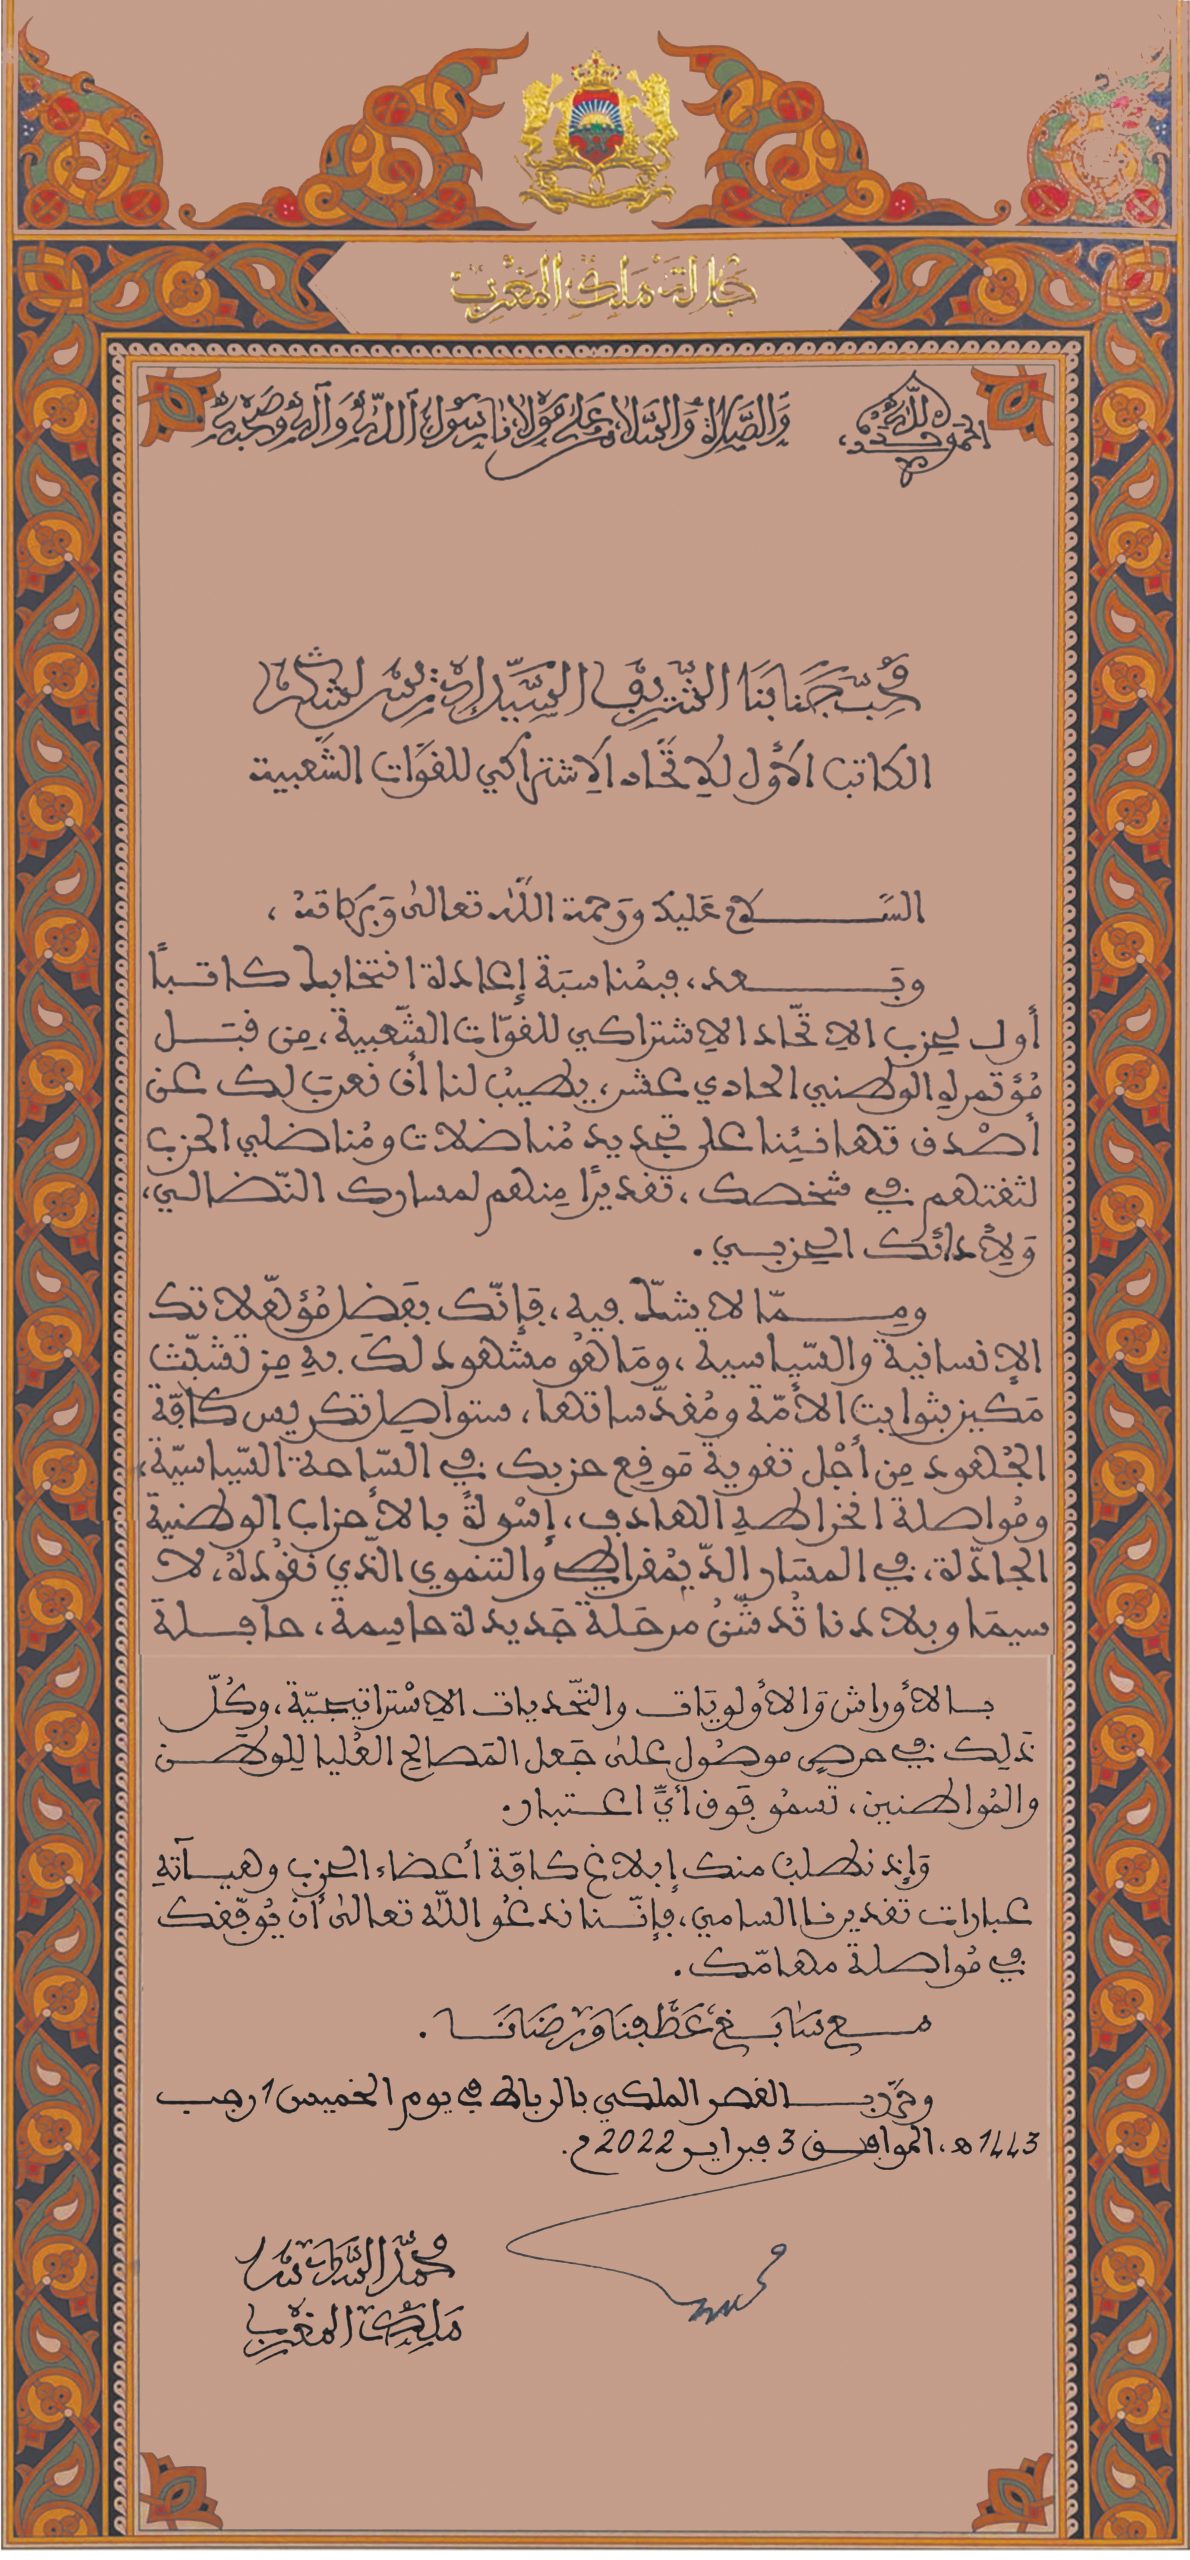 جلالة ملك المغرب
الحمد لله وحده
والصلاة والسلام على مولانا رسول الله وآله وصحبه
مُحبّ جَنابنَا الشّريف السَّيّد إدريس لشكر
الكاتب الأول للاتّحاد الاشتراكي للقوّات الشّعبية
السّلام عَليك ورحمة اللّه تعالىٰ وَبَركاته،
وبَعد، فبمُناسبَة إعادة انتخابك كاتبًا
أول لحزب الاتّحاد الاشتراكي للقوّات الشّعبية، مِن قبَل
مُؤتمره الوطني الحادي عشر، يطيبُ لنا أن نعربَ لك عن
أصْدق تهانئِنا على تجديد مُناضلات ومُناضلي الحزب
لثقتهم في شخصك، تقديرًا مِنهم لمسارك النّضالي،
وَلأدائك الحزبي.
ومِمّا لا يشكّ فيه، فإنّك بفَضل مُؤهّلاتك
الإنسانية والسّياسية، ومَا هُو مشهود لك به مِن تشبّث
مَكين بثوابت الأمّة ومُقدّساتها، ستواصل تكريس كافّة
الجُهود مِن أجْل تقوية مَوقع حزبك في السّاحة السّياسيّة،
ومُواصلة انخراطه الهادف، إسْوةً بالأحزاب الوطنية
الجادّة، في المسَار الدّيمُقراطي والتنموي الّذي نقُودهُ، لا
سيمَا وبلادنا تُدشّنُ مرحَلة جَديدة حاسِمة، حافلة
بالأوراش وَالأولويَات والتّحديات الاسْتراتيجيّة، وكُلّ
ذلك في حرصٍ موصُول علىٰ جَعل المَصالح العُليا للوطن
والمُواطنين، تسمُو فَوق أيّ اعتبار.
وَإذ نطلبُ منك إبلاغ كافّة أعضاء الحزب وهيآته
عبارات تقديرنا السامي، فإنّنا ندعُو اللّه تعالىٰ أن يُوفّقك
في مُواصلة مهامّك.
مع سَابغ عَطفنَا ورضَانَا.
وحُرّر بالقصر الملكي بالرباط في يوم الخميس 1 رجب
1443 هـ، الموافق 3 فبراير 2022 م.
محمد السادس
ملك المغرب